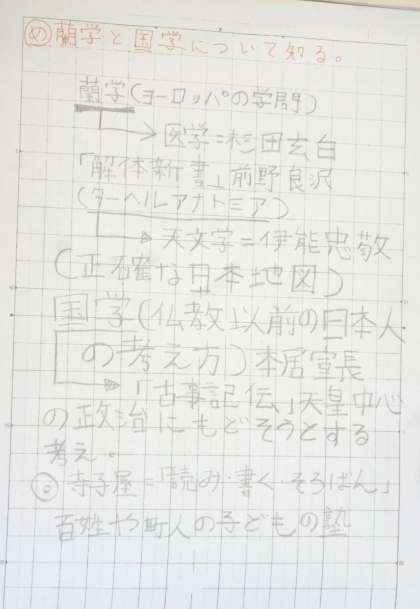 め 蘭学と国学について知る。
蘭学(ヨーロッパの学問)
医学=杉田玄白
「解体新書」前野良沢
(ターヘルアナトミア)
天文学=伊能忠敬
(正確な日本地図)
国学(仏教以前の日本人
の考え方)本居宣長
「古事記伝」天皇中心
の政治にもどそうとする
考え。
寺子屋=「読み・書く・そろばん」
百姓や町人の子どもの塾